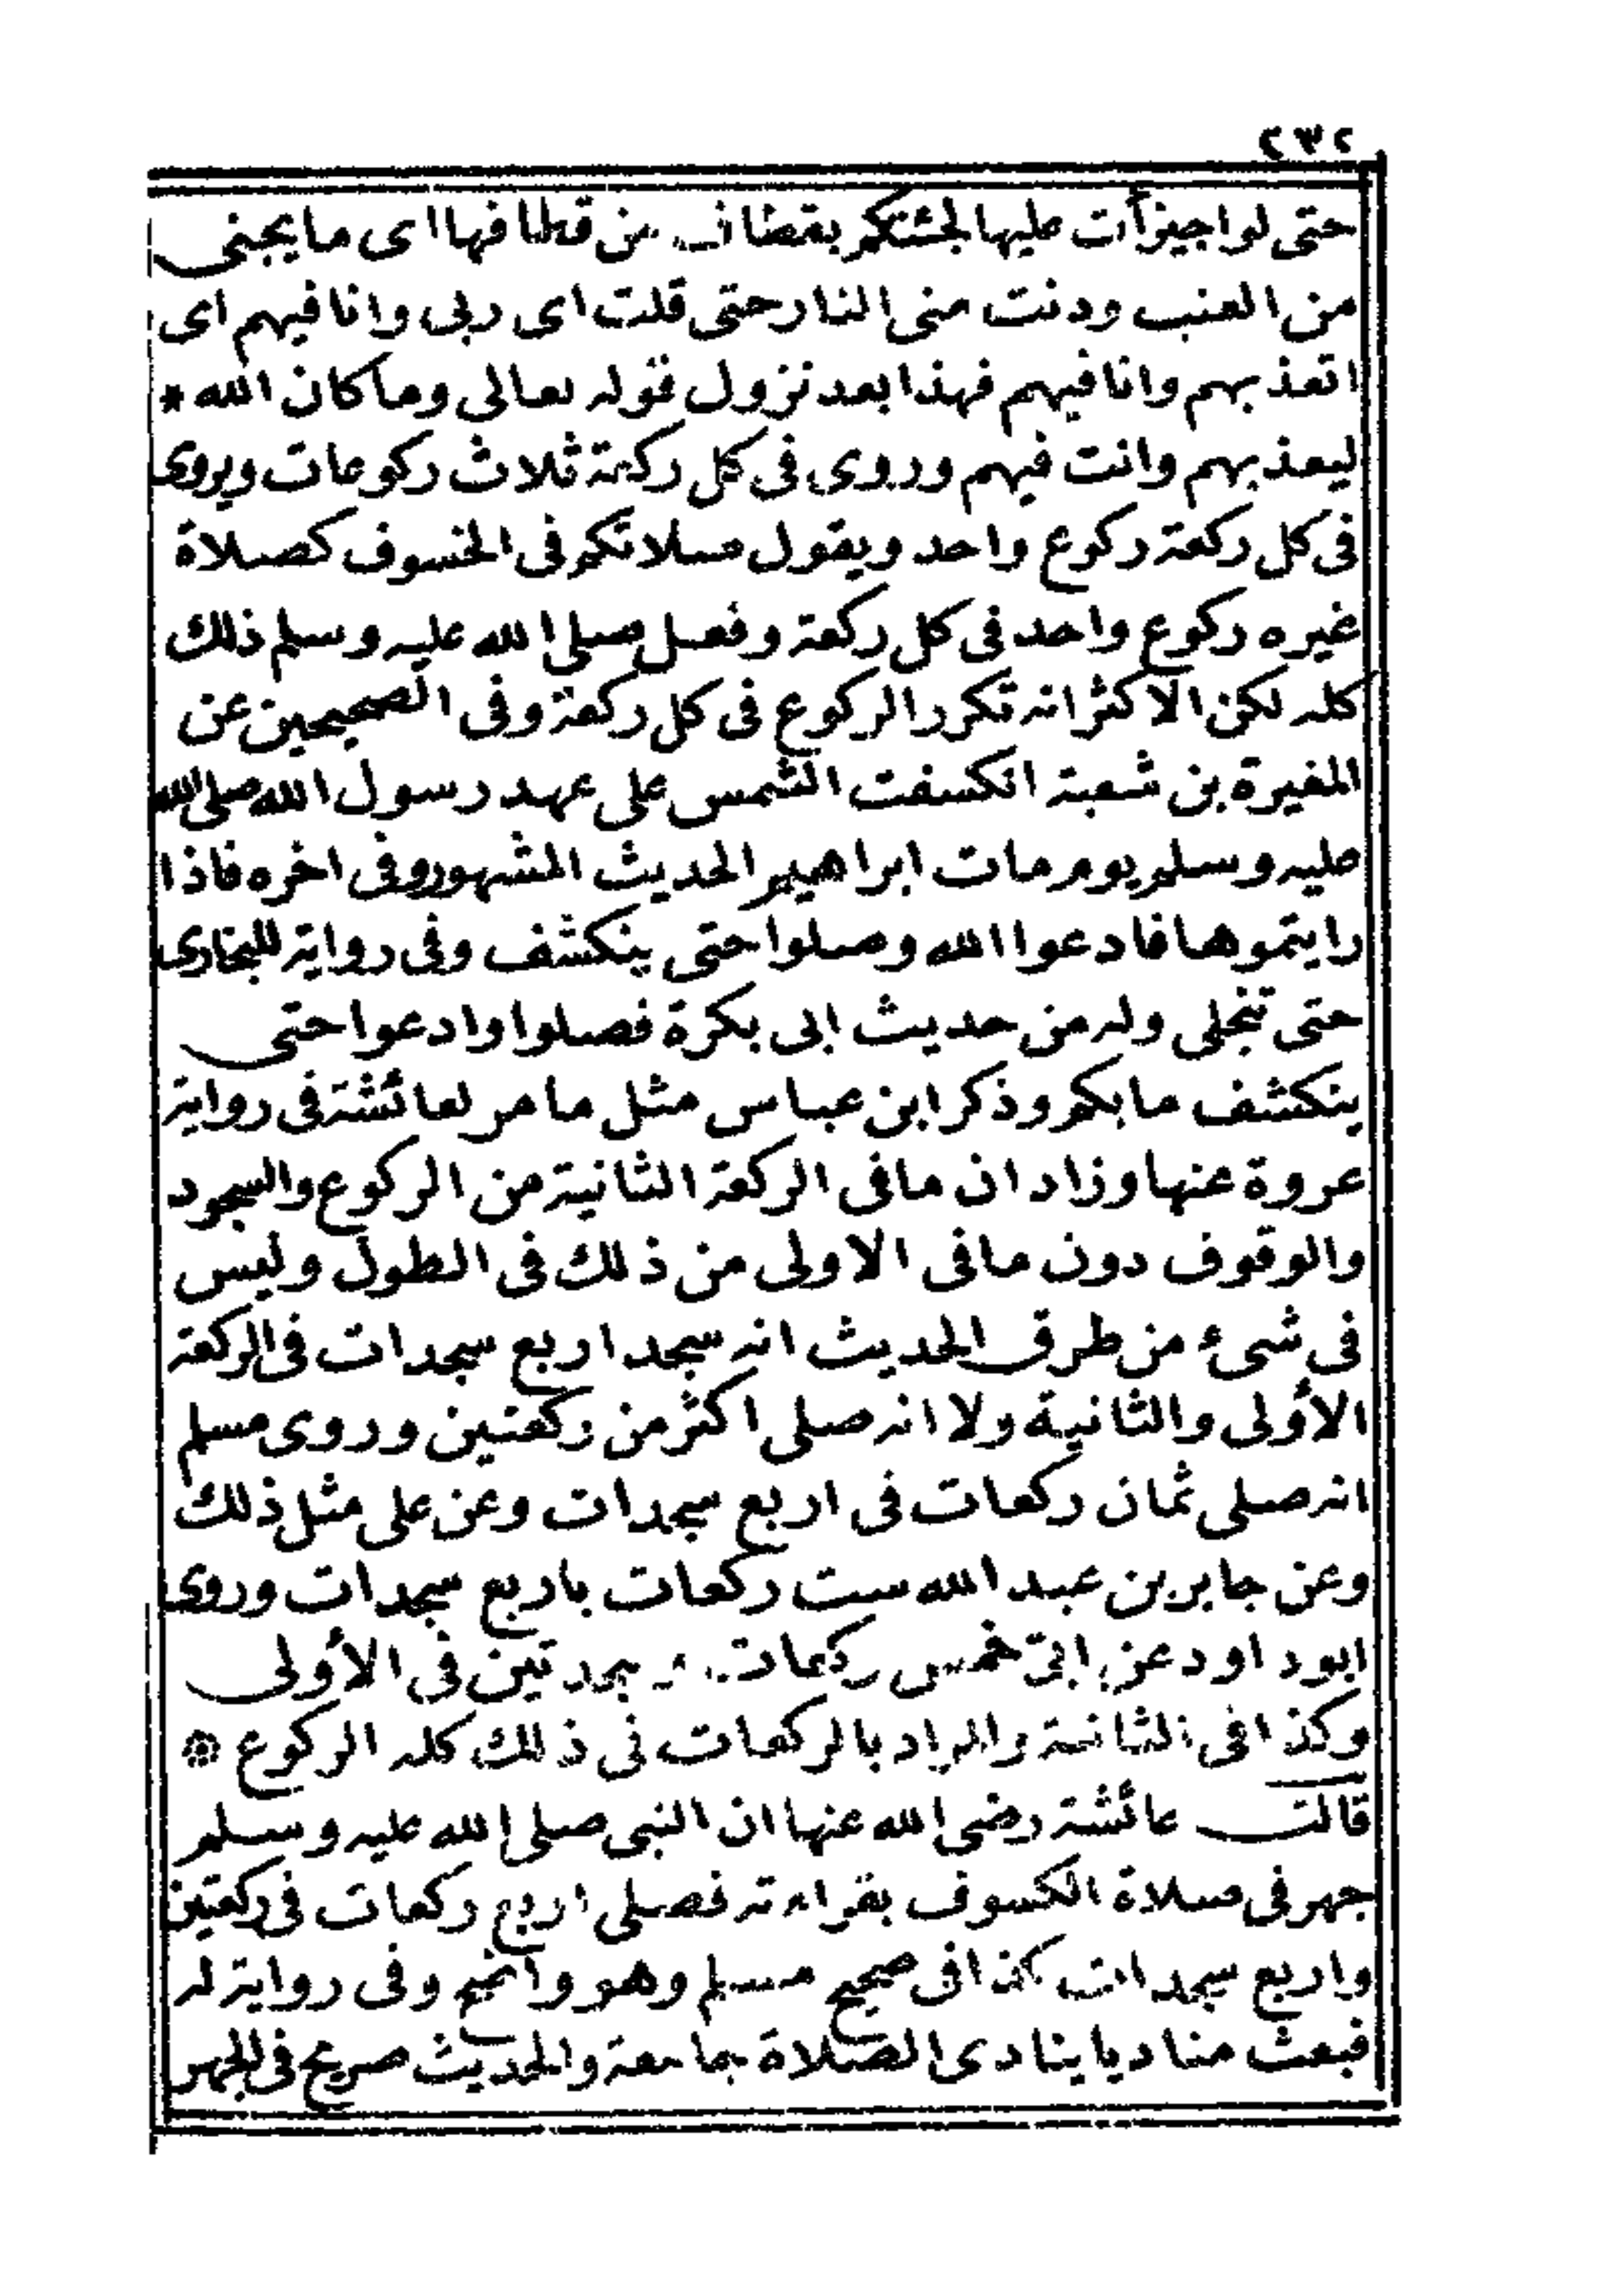 ٢٣٢
حتى لو اجترأت عليها لجئتكم بقطاف من قطافها اى ما يجنى
من العنب ودنت منى النار حتى قلت اى ربى وانا فيهم اى
اتعذبهم وانا فيهم فهذا بعد نزول قوله تعالى وما كان الله *
ليعذبهم وانت فيهم وروى فى كل ركعة ثلاث ركوعات ويروى
فى كل ركعة ركوع واحد ويقول صلاتكم فى الخسوف كصلاة
غيره ركوع واحد فى كل ركعة وفعل صلى الله عليه وسلم ذلك
كله لكن الاكثر انه تكرر الركوع فى كل ركعة وفى الصحيحين عن
المغيرة بن شعبة انكسفت الشمس على عهد رسول الله صلى الله
عليه وسلم يوم مات ابراهيم الحديث المشهور وفى اخره فاذا
رايتموها فادعوا الله وصلوا حتى ينكشف وفى رواية للبخارى
حتى تنجلى وله من حديث ابى بكرة فصلوا وادعوا حتى
ينكشف ما بكم وذكر ابن عباس مثل ما مر لعائشة فى رواية
عروة عنها وزاد ان ما فى الركعة الثانية من الركوع والسجود
والوقوف دون ما فى الاولى من ذلك فى الطول وليس
فى شىء من طرق الحديث انه سجد اربع سجدات فى الركعة
الأولى والثانية ولا انه صلى اكثر من ركعتين وروى مسلم
انه صلى ثمان ركعات فى اربع سجدات وعن على مثل ذلك
وعن جابر بن عبد الله ست ركعات باربع سجدات وروى
ابو داود عن ابىّ خمس ركعات وسجدتين فى الأولى
وكذا فى الثانية والمراد بالركعات فى ذلك كله الركوع *
قالت عائشة رضى الله عنها ان النبى صلى الله عليه وسلم
جهر فى صلاة الكسوف بقراءته فصلى اربع ركعات فى ركعتين
واربع سجدات كذا فى صحيح مسلم وهو واضح وفى رواية له
فبعث مناديا ينادى الصلاة جامعة والحديث صريح فى الجهر